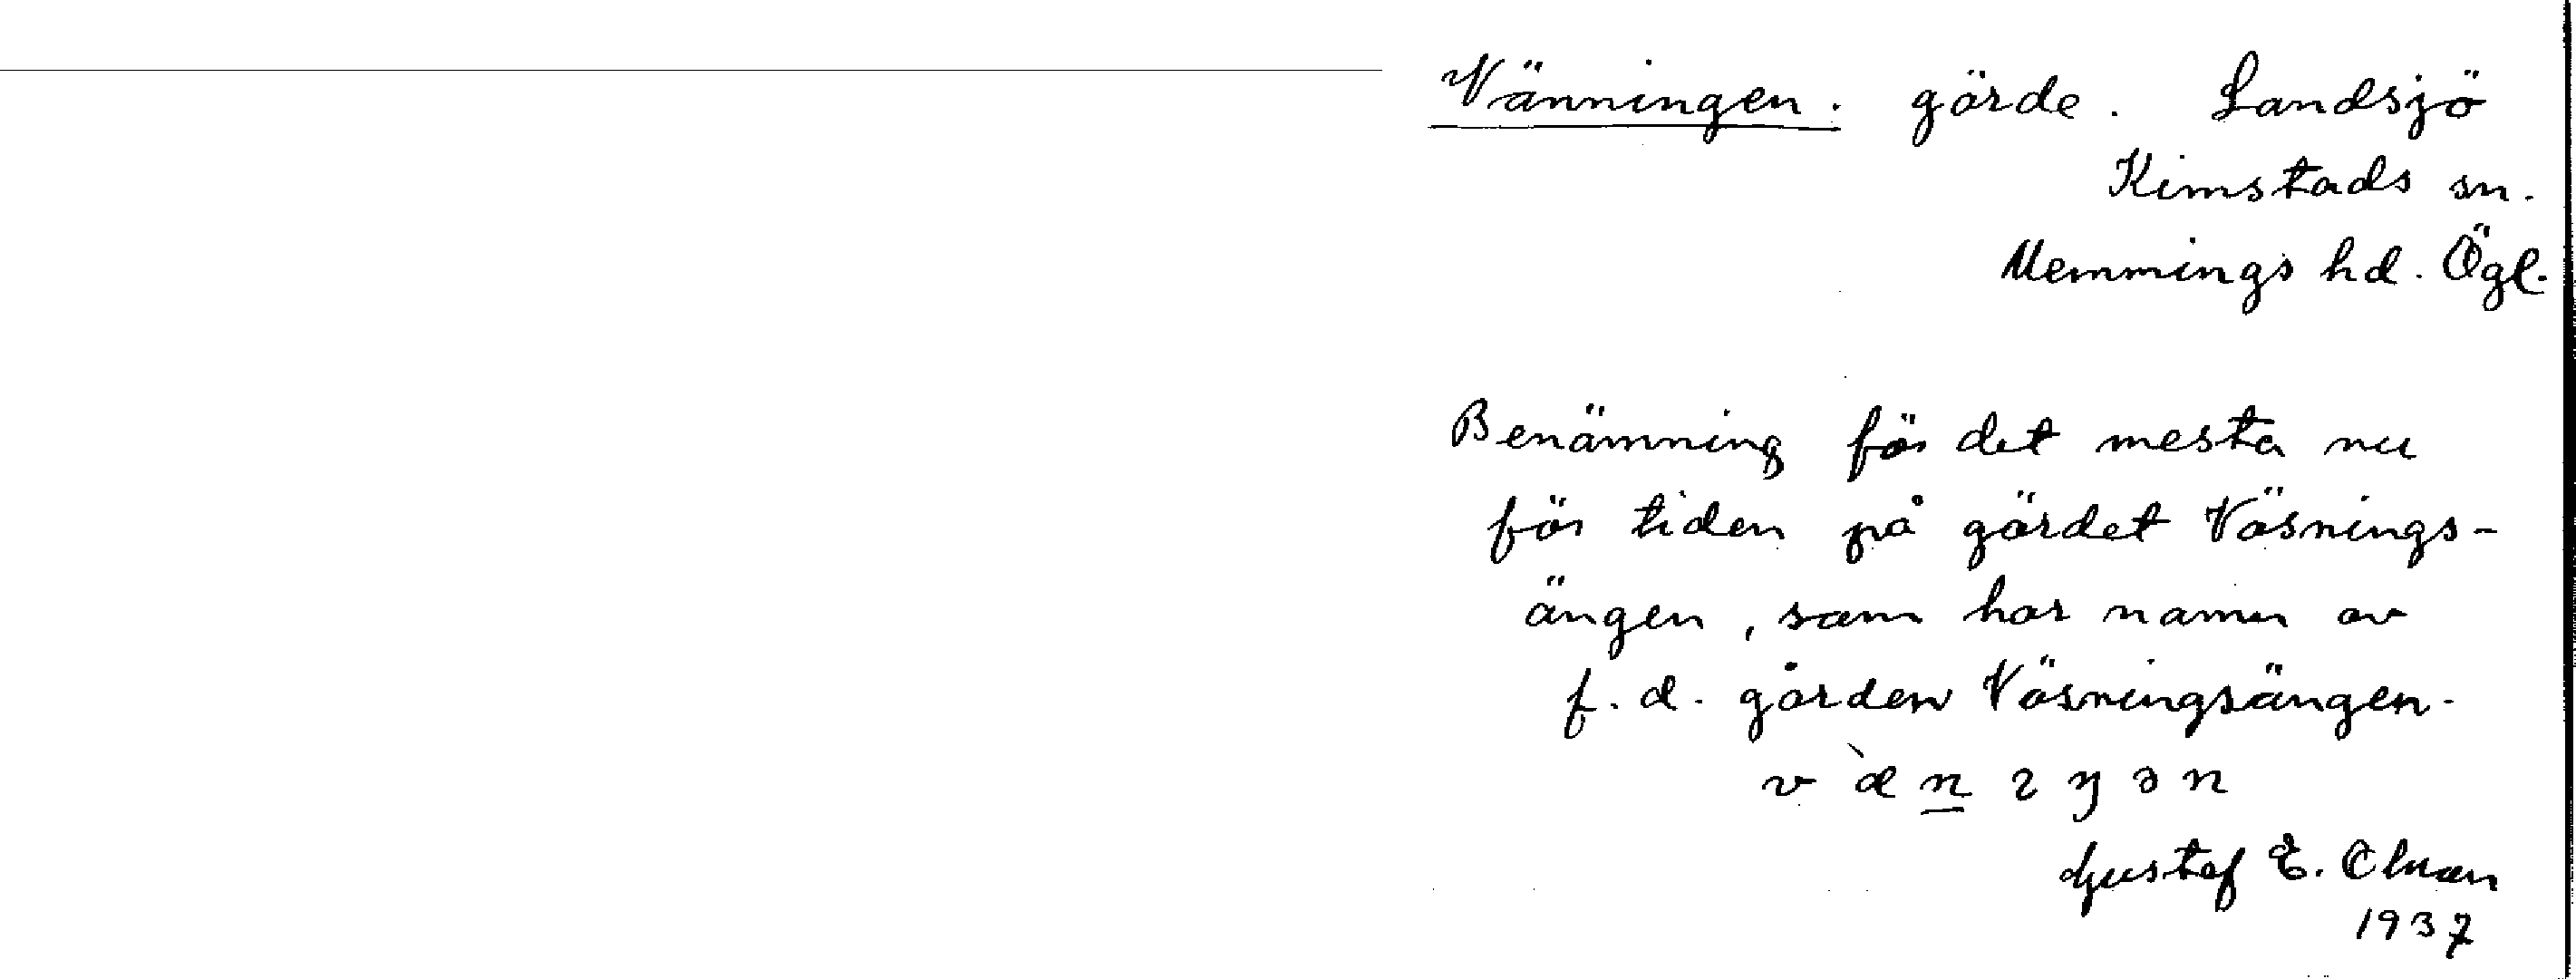 Vänningen. gärde. Landsjö
Kimstads sn.
Memmings hd. Ögl.
Benämning för det mesta nu
för tiden på gärdet Väsnings-
ängen, som har namn av
f. d. gården Väsningsängen.
Gustaf E.
1937